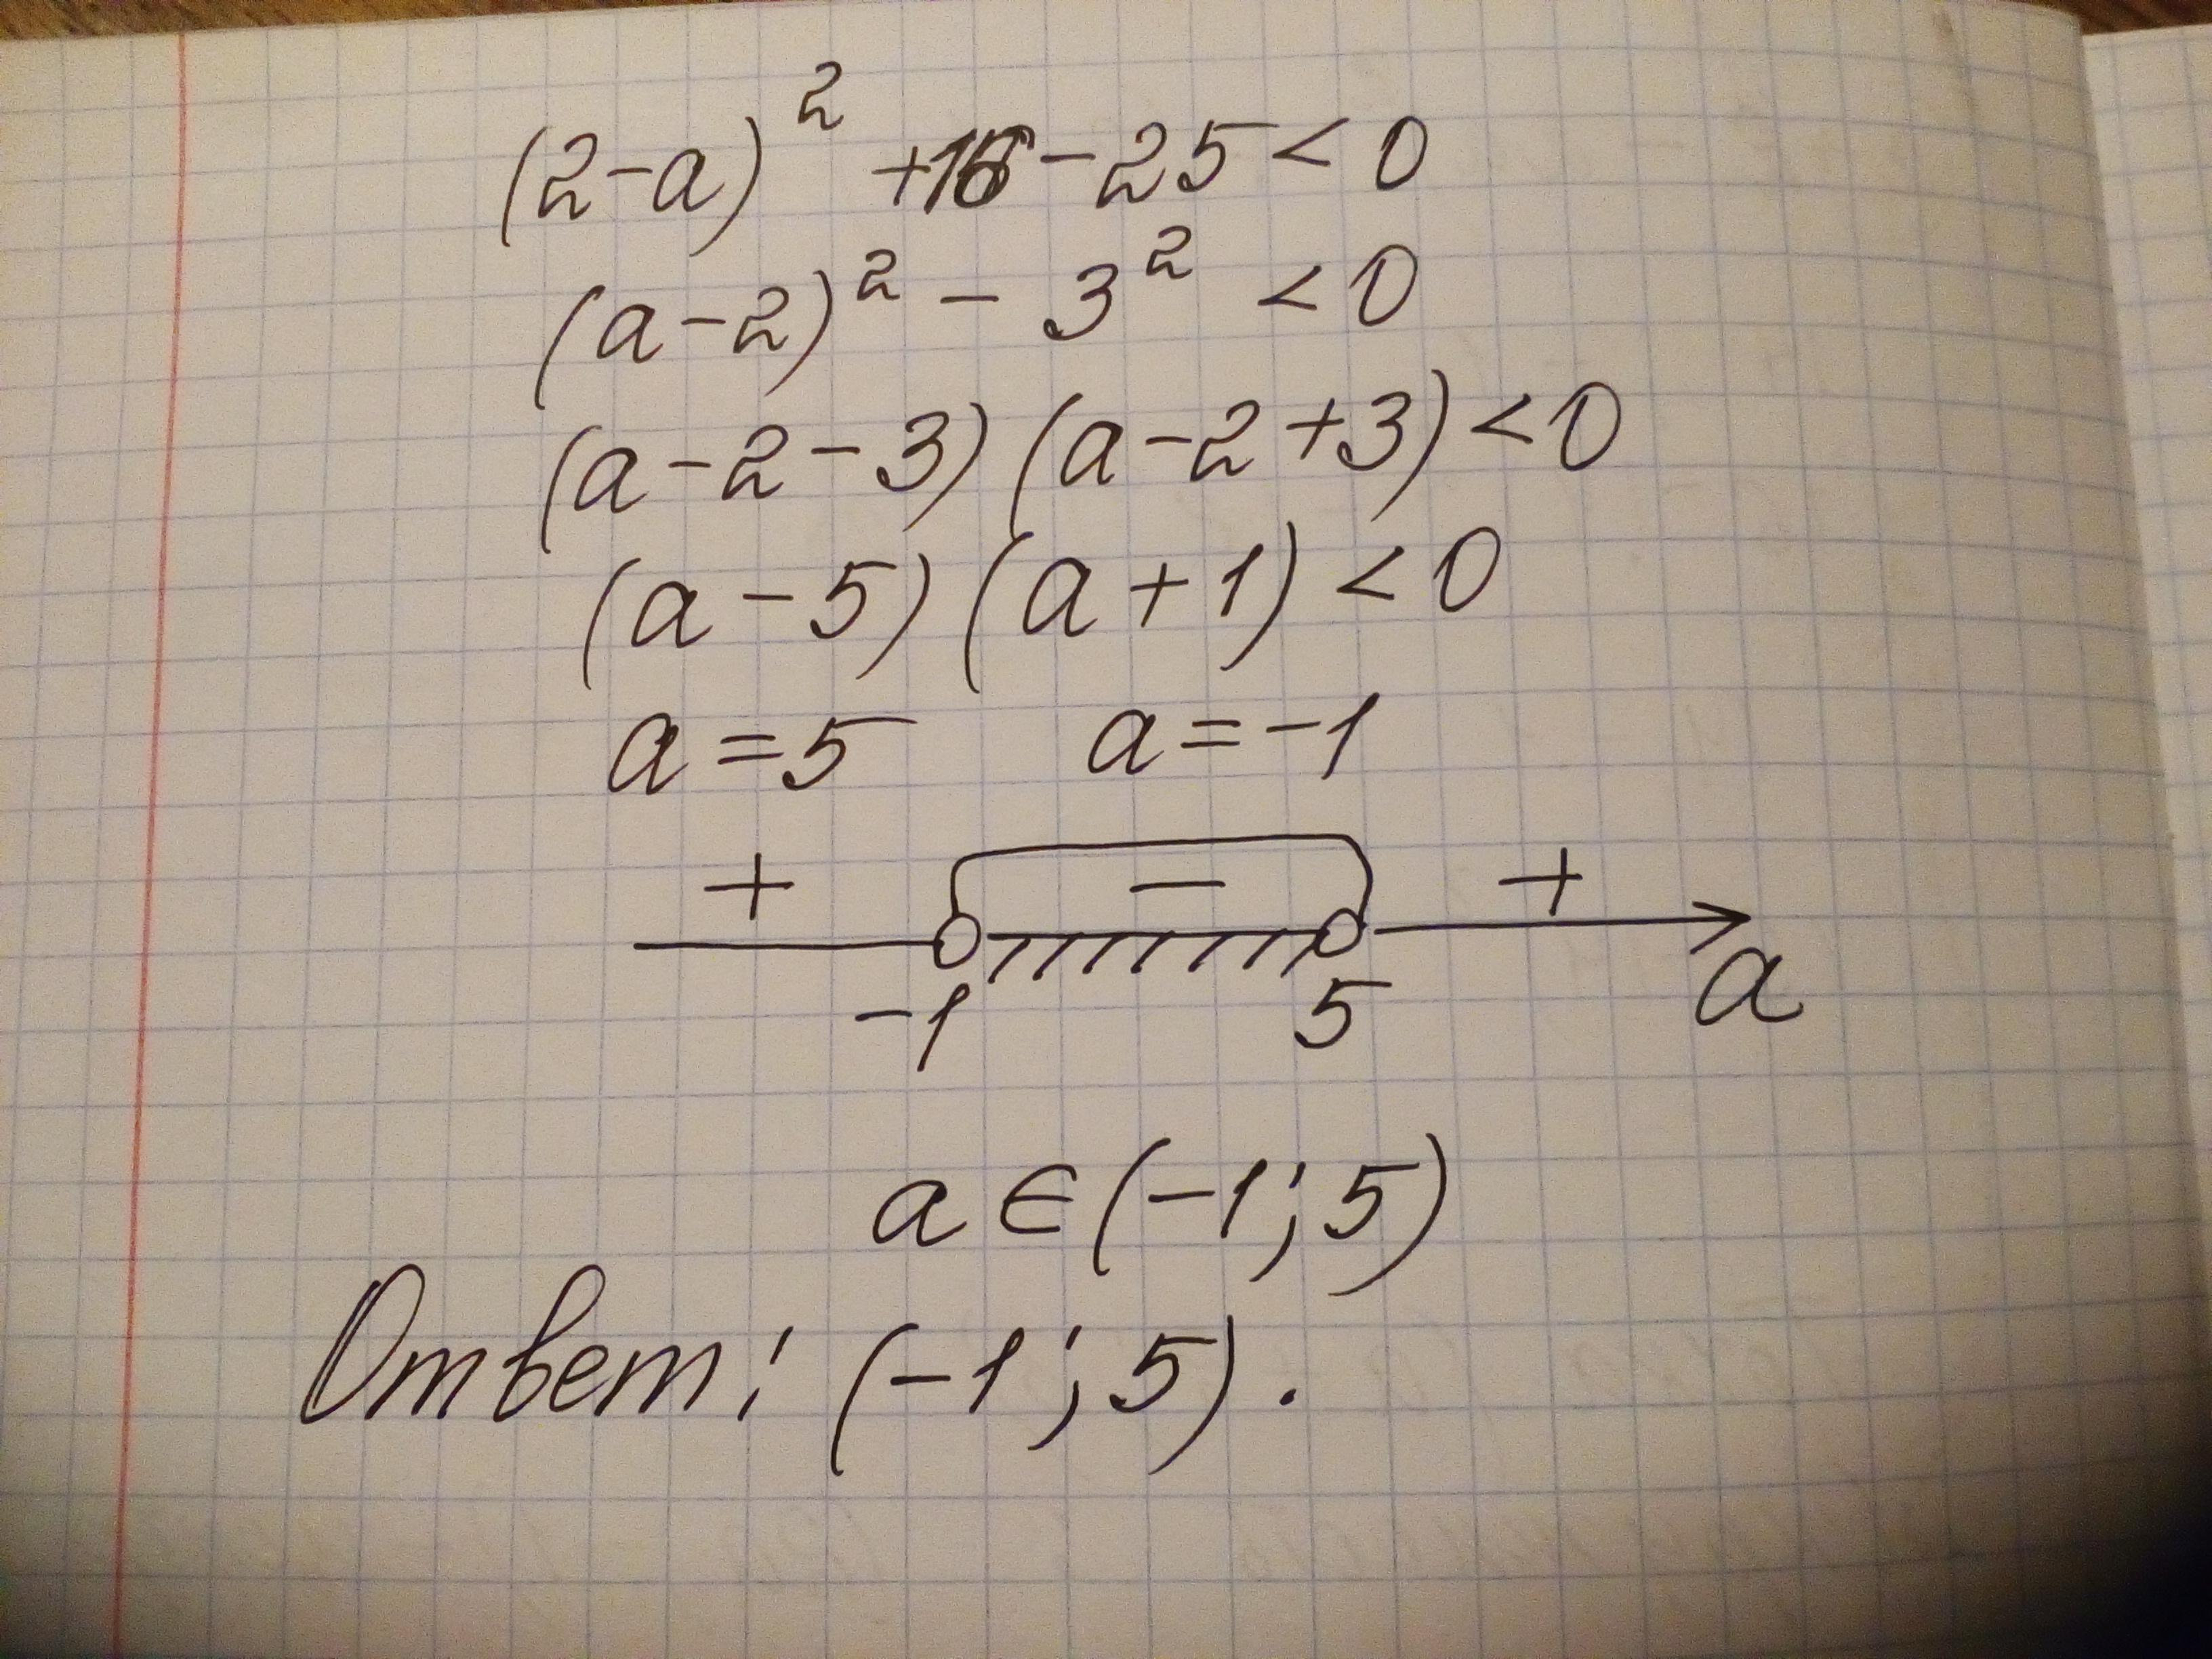 (2-a)² +16-25<0
(a-2)² - 3² <0
(a-2-3)(a-2+3)<0
(a-5)(a+1)<0
a=5 a=-1
+ − +
-1 5 a
a∈(-1;5)
Ответ: (-1;5).